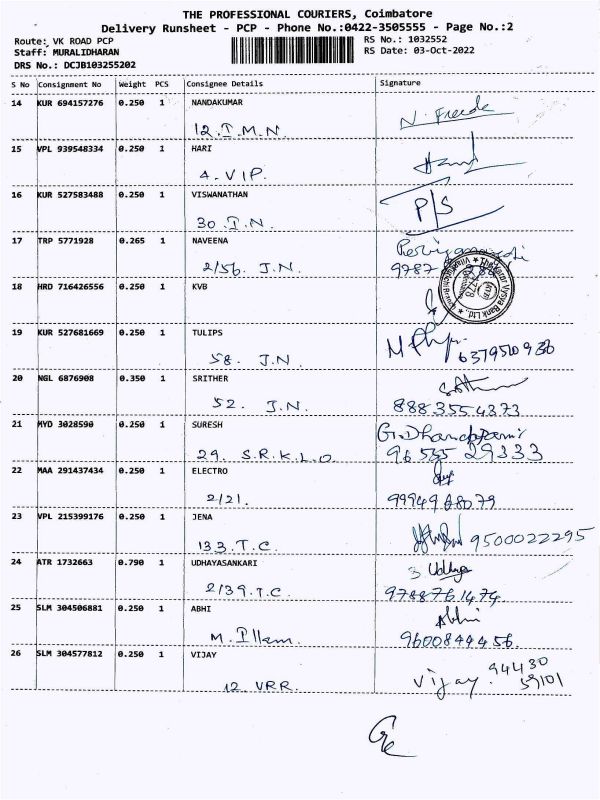 THE PROFESSIONAL COURIERS, Coimbatore
Delivery Runsheet - PCP - Phone No.:0422-3505555 - Page No.:2
Route: VK ROAD PCP RS No.: 1032552
Staff: MURALIDHARAN RS Date: 03-Oct-2022
DRS No.: DCJB103255202
S No Consignment No Weight PCS Consignee Details Signature
14 KUR 694157276 0.250 1 NANDAKUMAR
12. I. M. N.
15 VPL 939548334 0.250 1 HARI
4. VIP.
16 KUR 527583488 0.250 1 VISWANATHAN P/S
30. I. N.
17 TRP 5771928 0.265 1 NAVEENA
2/56. J. N.
18 HRD 716426556 0.250 1 KVB
19 KUR 527681669 0.250 1 TULIPS
58. J. N.
20 NGL 6876908 0.350 1 SRITHER
52. J. N. 8883554373
21 MYD 3028590 0.250 1 SURESH
29. S. R. K. L. O. 96555 29333
22 MAA 291437434 0.250 1 ELECTRO
2/21. 9994968079
23 VPL 215399176 0.250 1 JENA
133. T. C. 9500022295
24 ATR 1732663 0.790 1 UDHAYASANKARI
2/39. T. C. 9788761474
25 SLM 304506881 0.250 1 ABHI Abhi
M. Illam. 9600844456.
26 SLM 304577812 0.250 1 VIJAY
12. VRR. Vijay. 94430 59101